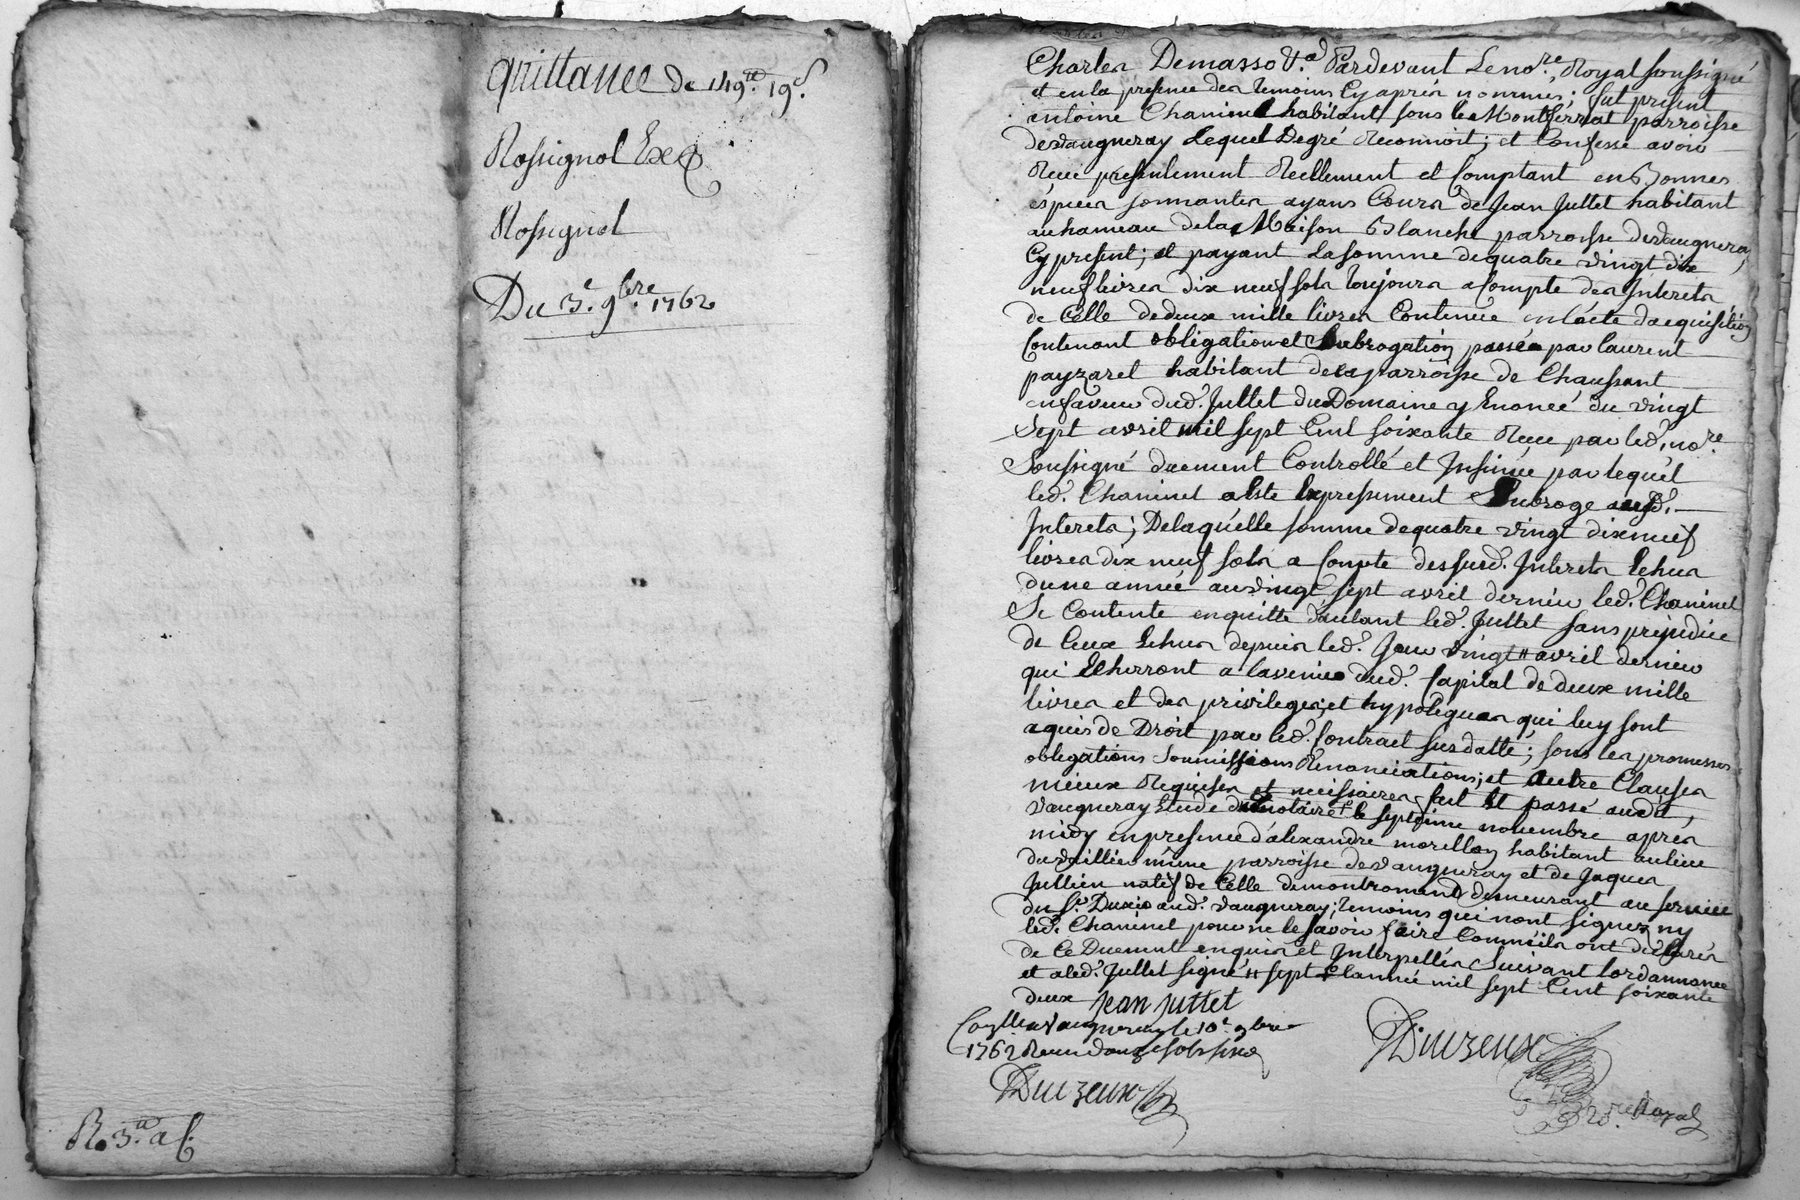 quittance De 149.te 19.s
Rossignol Ex.
Rossignol
Du 3.e 9.bre 1762
R. 3.te a f.
Charles Demasso &.a Pardevant Le no.re Royal soussigné
et en la presence des temoins Cy apres nommes; fut present
antoine Chaninel habitant sous le Montferrat parroisse
de vaugneray Lequel De gré Reconnoit; et Confesse avoir
Reçu presentement Réellement et Comptant en Bonnes
éspeces sonnantes ayans Cours de Jean Juttet habitant
au hameau de la Maison Blanche parroisse de vaugneray
Cy present; et payant La somme de quatre vingt dix
neuf livres dix neuf sols toujours a Compte des Interets
de Celle de deux mille livres Contenüe en l'acte d'acquisition
Contenant obligation et Subrogation passée par laurent
payzaret habitant de la parroisse de Chaussant
en faveur dud. Juttet du Domaine y Enoncé du vingt
Sept avril mil sept Cent soixante Reçu par led. no.re
Soussigné duement Controllé et Insinüé par lequel
led. Chaninel a esté Expressement Subrogé aud.
Interets; De laquelle somme de quatre vingt dix neuf
livres dix neuf sols a Compte des susd. Interets Echus
d'une année au vingt sept avril dernier led. Chaninel
Se Contente en quitte d'autant led. Juttet sans prejudice
de Ceux Echus depuis led. Jour vingt # avril dernier
qui Echerront a l'avenir dud. Capital de deux mille
livres et des privileges; et hypoteques qui luy sont
aquis de Droit par led. Contract susdatté; sous les promesses
obligations Soumissions Renonciations; et autre Clauses
mieux Requises et necessaires fait Et passé audit
vaugneray Etude du notaire le septieme novembre apres
midy en presence d'alexandre morillon habitant au lieu
du vaillier même parroisse de vaugneray et de Jaques
Jullien natif de Celle de montromand demeurant au service
du S.r aud. vaugneray; temoins qui n'ont signez ny
led. Chaninel pour ne le savoir faire Comme ils ont déclarés
de Ce Duement enquis et Interpellés Suivant l'ordonnance
et a led. Juttet signé # sept L'année mil sept Cent soixante
deux Jean Juttet
Con.llé a Vaugneray le 10.e 9bre
1762 Reçu douze sols six d.
Duizeux
Duizeux
no.re Royal